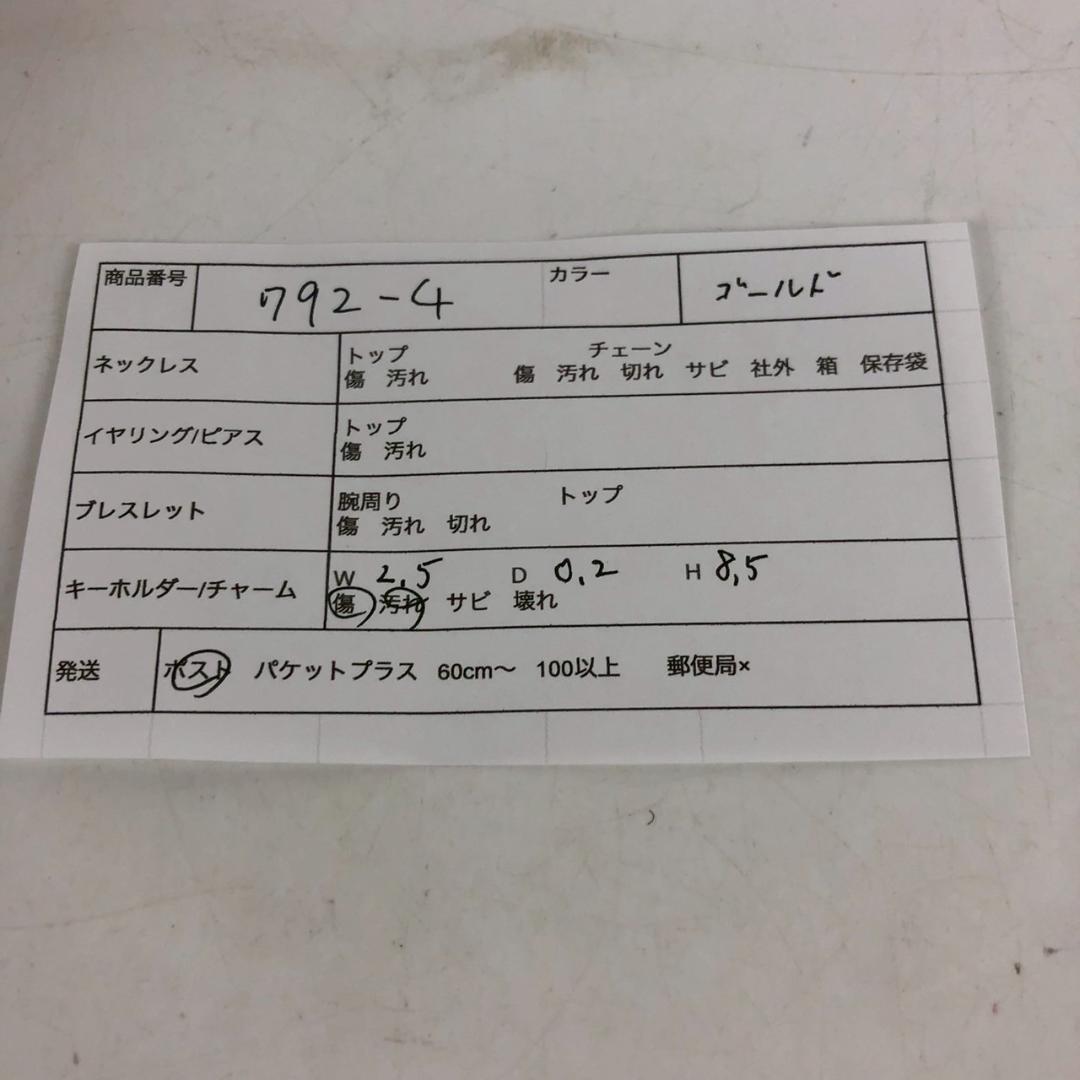 商品番号 792-4 カラー ゴールド
ネックレス トップ チェーン
傷 汚れ 傷 汚れ 切れ サビ 社外 箱 保存袋
イヤリング/ピアス トップ
傷 汚れ
ブレスレット 腕周り トップ
傷 汚れ 切れ
キーホルダー/チャーム W 2,5 D 0,2 H 8,5
傷 汚れ サビ 壊れ
発送 ポスト パケットプラス 60cm〜 100以上 郵便局×